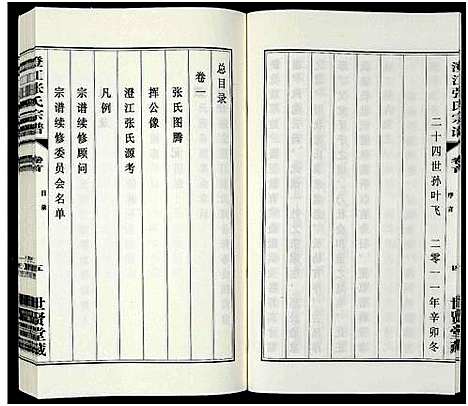 澄江张氏宗谱
卷首
序言
二十四世孙叶飞 二〇一一年辛卯冬
世贤堂藏
总目录
卷一
张氏图腾
挥公像
澄江张氏源考
凡例
宗谱续修顾问
宗谱续修委员会名单
澄江张氏宗谱
卷首
目录
五
世贤堂藏